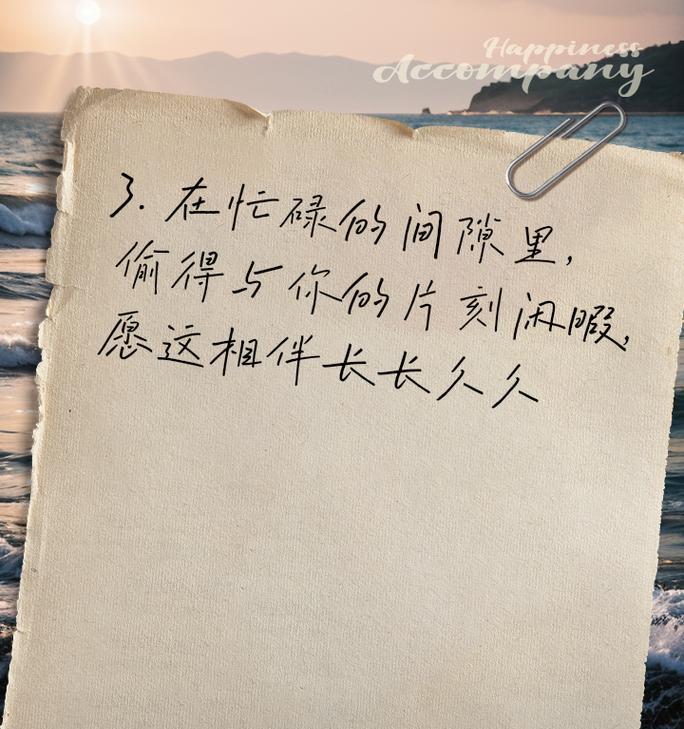 Happiness
Accompany
3. 在忙碌的间隙里,
偷得与你的片刻闲暇,
愿这相伴长长久久